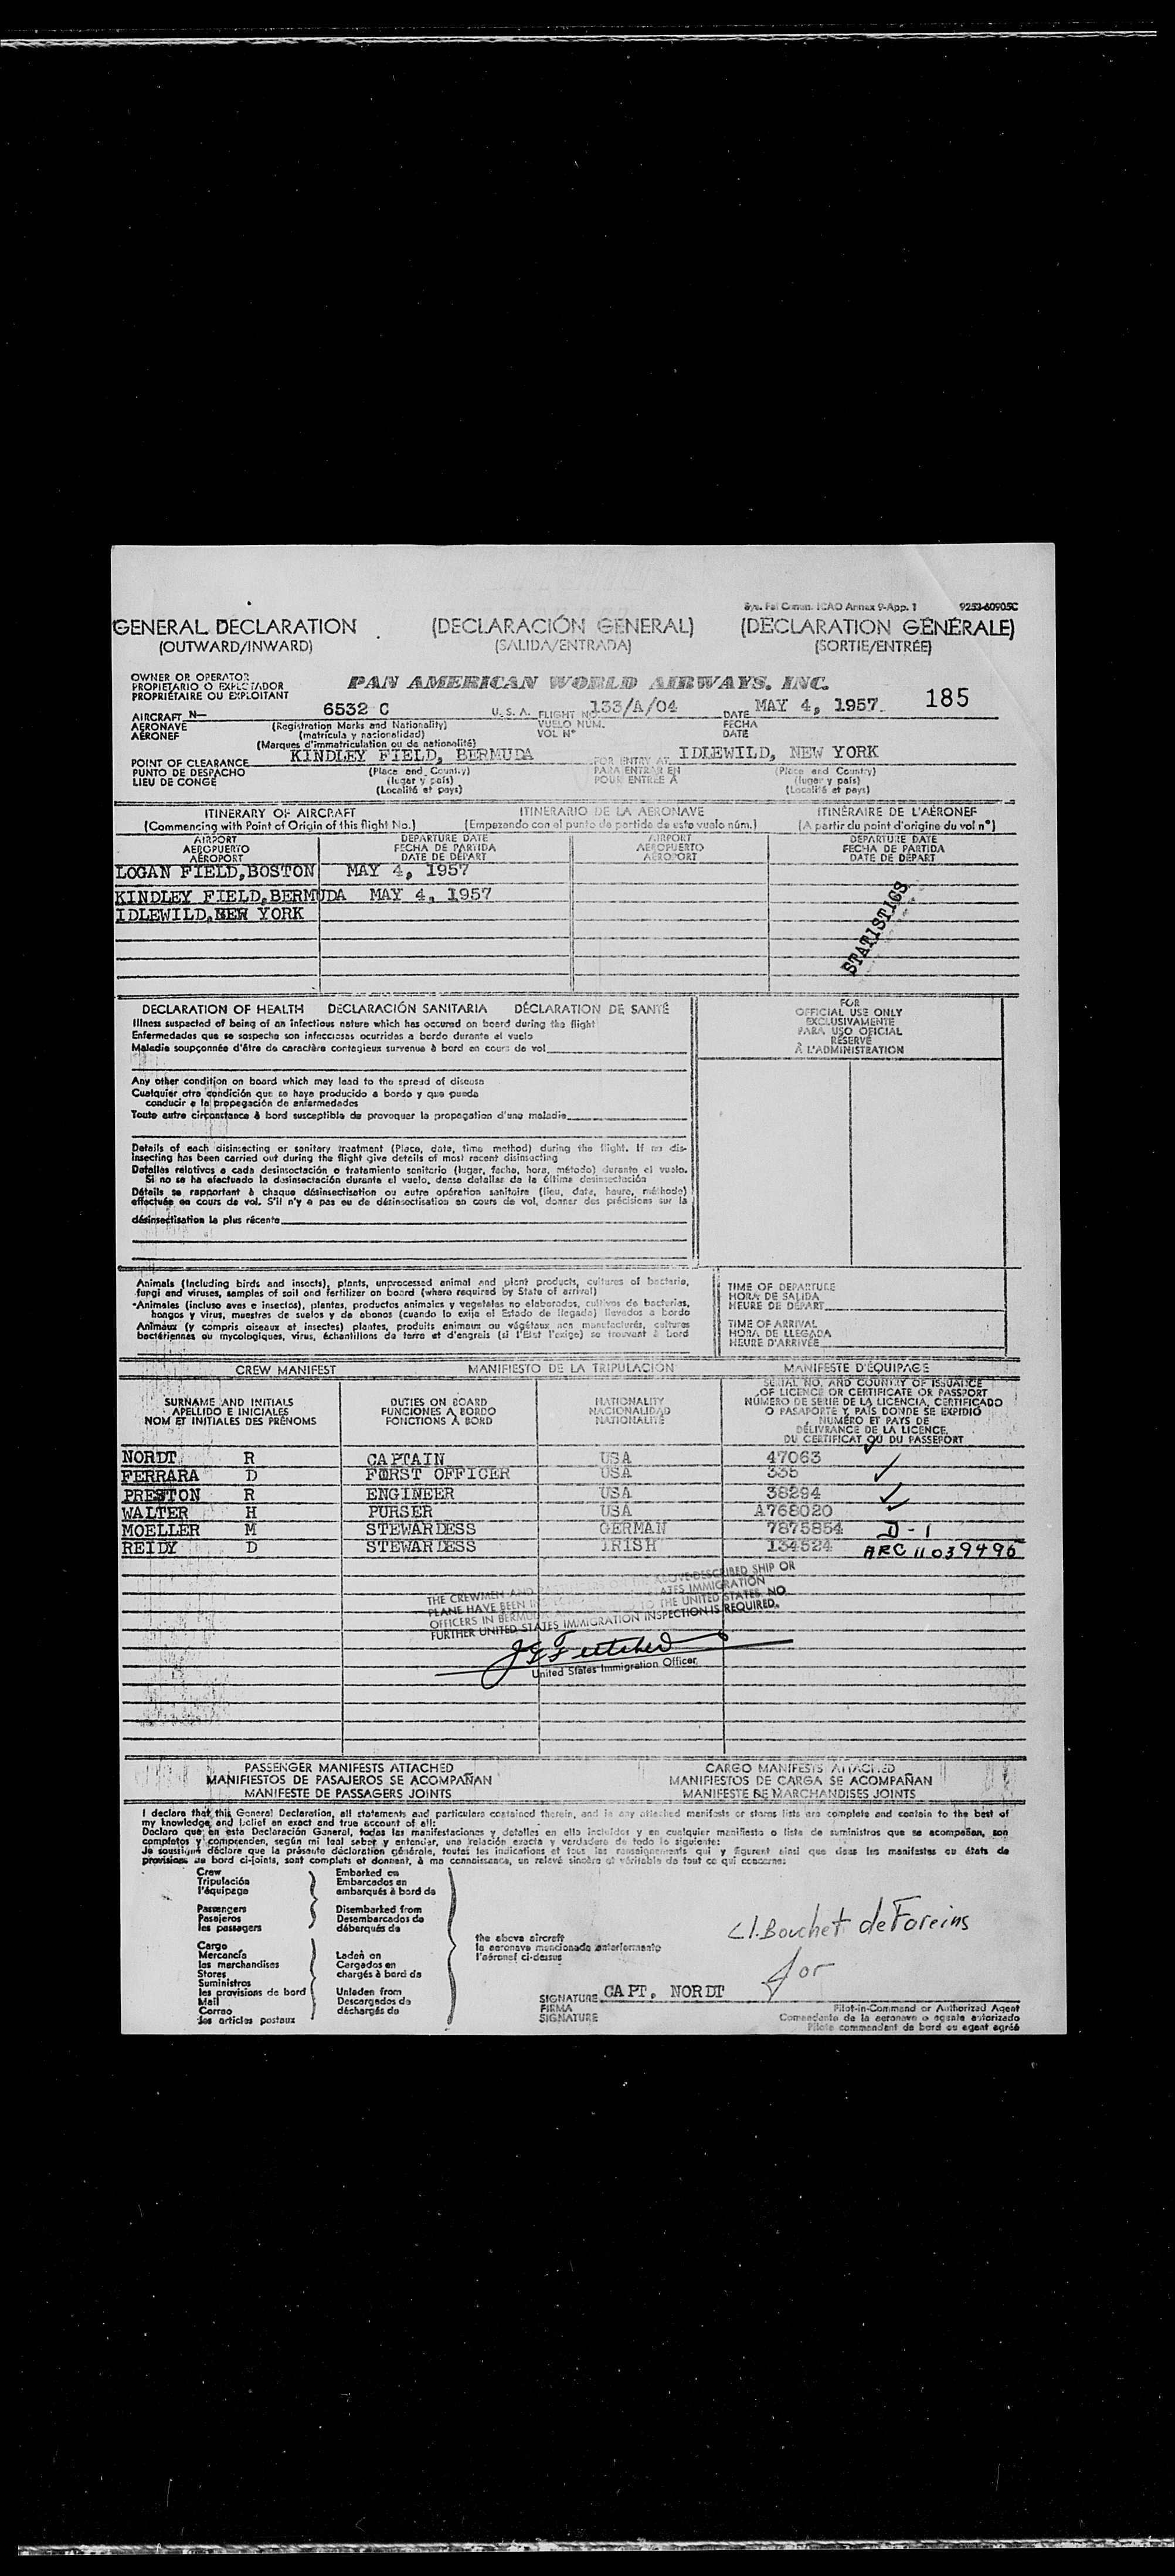 Sys. Fal Comm. ICAO Annex 9-App. 1 9253-60905C
GENERAL DECLARATION (DECLARACIÓN GENERAL) (DÉCLARATION GÉNÉRALE)
(OUTWARD/INWARD) (SALIDA/ENTRADA) (SORTIE/ENTRÉE)
OWNER OR OPERATOR
PROPIETARIO O EXPLOTADOR
PROPRIÉTAIRE OU EXPLOITANT
PAN AMERICAN WORLD AIRWAYS, INC.
185
AIRCRAFT N— 6532 C U. S. A. FLIGHT NO. 133/A/04 DATE MAY 4, 1957.
AERONAVE (Registration Marks and Nationality) VUELO NUM. FECHA
AÉRONEF (matrícula y nacionalidad) VOL Nº DATE
(Marques d'immatriculation ou de nationalité)
POINT OF CLEARANCE KINDLEY FIELD, BERMUDA FOR ENTRY AT IDLEWILD, NEW YORK
PUNTO DE DESPACHO (Place and Country) PARA ENTRAR EN (Place and Country)
LIEU DE CONGÉ (lugar y país) POUR ENTRÉE À (lugar y país)
(Localité et pays) (Localité et pays)
ITINERARY OF AIRCRAFT ITINERARIO DE LA AERONAVE ITINÉRAIRE DE L'AÉRONEF
(Commencing with Point of Origin of this flight No.) (Empezando con el punto de partida de este vuelo núm.) (A partir du point d'origine du vol nº)
AIRPORT DEPARTURE DATE AIRPORT DEPARTURE DATE
AEROPUERTO FECHA DE PARTIDA AEROPUERTO FECHA DE PARTIDA
AÉROPORT DATE DE DÉPART AÉROPORT DATE DE DÉPART
LOGAN FIELD,BOSTON MAY 4, 1957
KINDLEY FIELD,BERMUDA MAY 4, 1957
IDLEWILD,NEW YORK
STATISTICS
DECLARATION OF HEALTH DECLARACIÓN SANITARIA DÉCLARATION DE SANTÉ
Illness suspected of being of an infectious nature which has occured on board during the flight
Enfermedades que se sospecha son infecciosas ocurridas a bordo durante el vuelo
Maladie soupçonnée d'être de caractère contagieux survenue à bord en cours de vol
FOR
OFFICIAL USE ONLY
EXCLUSIVAMENTE
PARA USO OFICIAL
RÉSERVÉ
À L'ADMINISTRATION
Any other condition on board which may lead to the spread of disease
Cualquier otra condición que se haya producido a bordo y que pueda
conducir a la propagación de enfermedades
Toute autre circonstance à bord susceptible de provoquer la propagation d'une maladie
Details of each disinsecting or sanitary treatment (Place, date, time method) during the flight. If no dis-
insecting has been carried out during the flight give details of most recent disinsecting
Detalles relativos a cada desinsectación o tratamiento sanitario (lugar, fecha, hora, método) durante el vuelo.
Si no se ha efectuado la desinsectación durante el vuelo, dense detalles de la última desinsectación
Détails se rapportant à chaque désinsectisation ou autre opération sanitaire (lieu, date, heure, méthode)
effectuée en cours de vol. S'il n'y a pas eu de désinsectisation en cours de vol, donner des précisions sur la
désinsectisation la plus récente
Animals (Including birds and insects), plants, unprocessed animal and plant products, cultures of bacteria,
fungi and viruses, samples of soil and fertilizer on board (where required by State of arrival)
Animales (incluso aves e insectos), plantas, productos animales y vegetales no elaborados, cultivos de bacterias,
hongos y virus, muestras de suelos y de abonos (cuando lo exija el Estado de llegada) llevados a bordo
Animaux (y compris oiseaux et insectes) plantes, produits animaux ou végétaux non manufacturés, cultures
bactériennes ou mycologiques, virus, échantillons de terre et d'engrais (si l'Etat l'exige) se trouvant à bord
TIME OF DEPARTURE
HORA DE SALIDA
HEURE DE DÉPART
TIME OF ARRIVAL
HORA DE LLEGADA
HEURE D'ARRIVÉE
CREW MANIFEST MANIFIESTO DE LA TRIPULACIÓN MANIFESTE D'ÉQUIPAGE
SURNAME AND INITIALS
APELLIDO E INICIALES
NOM ET INITIALES DES PRÉNOMS
DUTIES ON BOARD
FUNCIONES A BORDO
FONCTIONS À BORD
NATIONALITY
NACIONALIDAD
NATIONALITÉ
SERIAL NO. AND COUNTRY OF ISSUANCE
OF LICENCE OR CERTIFICATE OR PASSPORT
NÚMERO DE SERIE DE LA LICENCIA, CERTIFICADO
O PASAPORTE Y PAÍS DONDE SE EXPIDIÓ
NUMÉRO ET PAYS DE
DÉLIVRANCE DE LA LICENCE,
DU CERTIFICAT OU DU PASSEPORT
NORDT R CAPTAIN USA 47063 ✓
FERRARA D FIRST OFFICER USA 335 ✓
PRESTON R ENGINEER USA 38294 ✓
WALTER H PURSER USA A768020 ✓
MOELLER M STEWARDESS GERMAN 7875854 D-1
REIDY D STEWARDESS IRISH 134524 ARC 11039496
THE CREWMEN AND ABOVE-DESCRIBED SHIP OR
PLANE HAVE BEEN STATES IMMIGRATION
OFFICERS IN BERMUDA TO THE UNITED STATES. NO
FURTHER UNITED STATES IMMIGRATION INSPECTION IS REQUIRED.
United States Immigration Officer
PASSENGER MANIFESTS ATTACHED CARGO MANIFESTS ATTACHED
MANIFIESTOS DE PASAJEROS SE ACOMPAÑAN MANIFIESTOS DE CARGA SE ACOMPAÑAN
MANIFESTE DE PASSAGERS JOINTS MANIFESTE DE MARCHANDISES JOINTS
I declare that this General Declaration, all statements and particulars contained therein, and in any attached manifests or stores lists are complete and contain to the best of
my knowledge and belief an exact and true account of all:
Declaro que en esta Declaración General, todas las manifestaciones y detalles en ella incluídos y en cualquier manifiesto o lista de suministros que se acompañan, son
completos y comprenden, según mi leal saber y entender, una relación exacta y verdadera de todo lo siguiente:
Je soussigné déclare que la présente déclaration générale, toutes les indications et tous les renseignements qui y figurent ainsi que dans les manifestes ou états de
provisions de bord ci-joints, sont complets et donnent, à ma connaissance, un relevé sincère et véritable de tout ce qui concerne:
Crew Embarked on
Tripulación Embarcados en
l'équipage embarqués à bord de
Passengers Disembarked from
Pasajeros Desembarcados de
les passagers débarqués de
Cargo
Mercancía Laden on
les marchandises Cargados en
Stores chargés à bord de
Suministros
les provisions de bord Unladen from
Mail Descargados de
Correo déchargés de
les articles postaux
the above aircraft
la aeronave mencionada anteriormente
l'aéronef ci-dessus
Cl. Bouchet de Foreins
for
SIGNATURE CAPT. NORDT
FIRMA
SIGNATURE
Pilot-in-Command or Authorized Agent
Comandante de la aeronave o agente autorizado
Pilote commandant de bord ou agent agréé